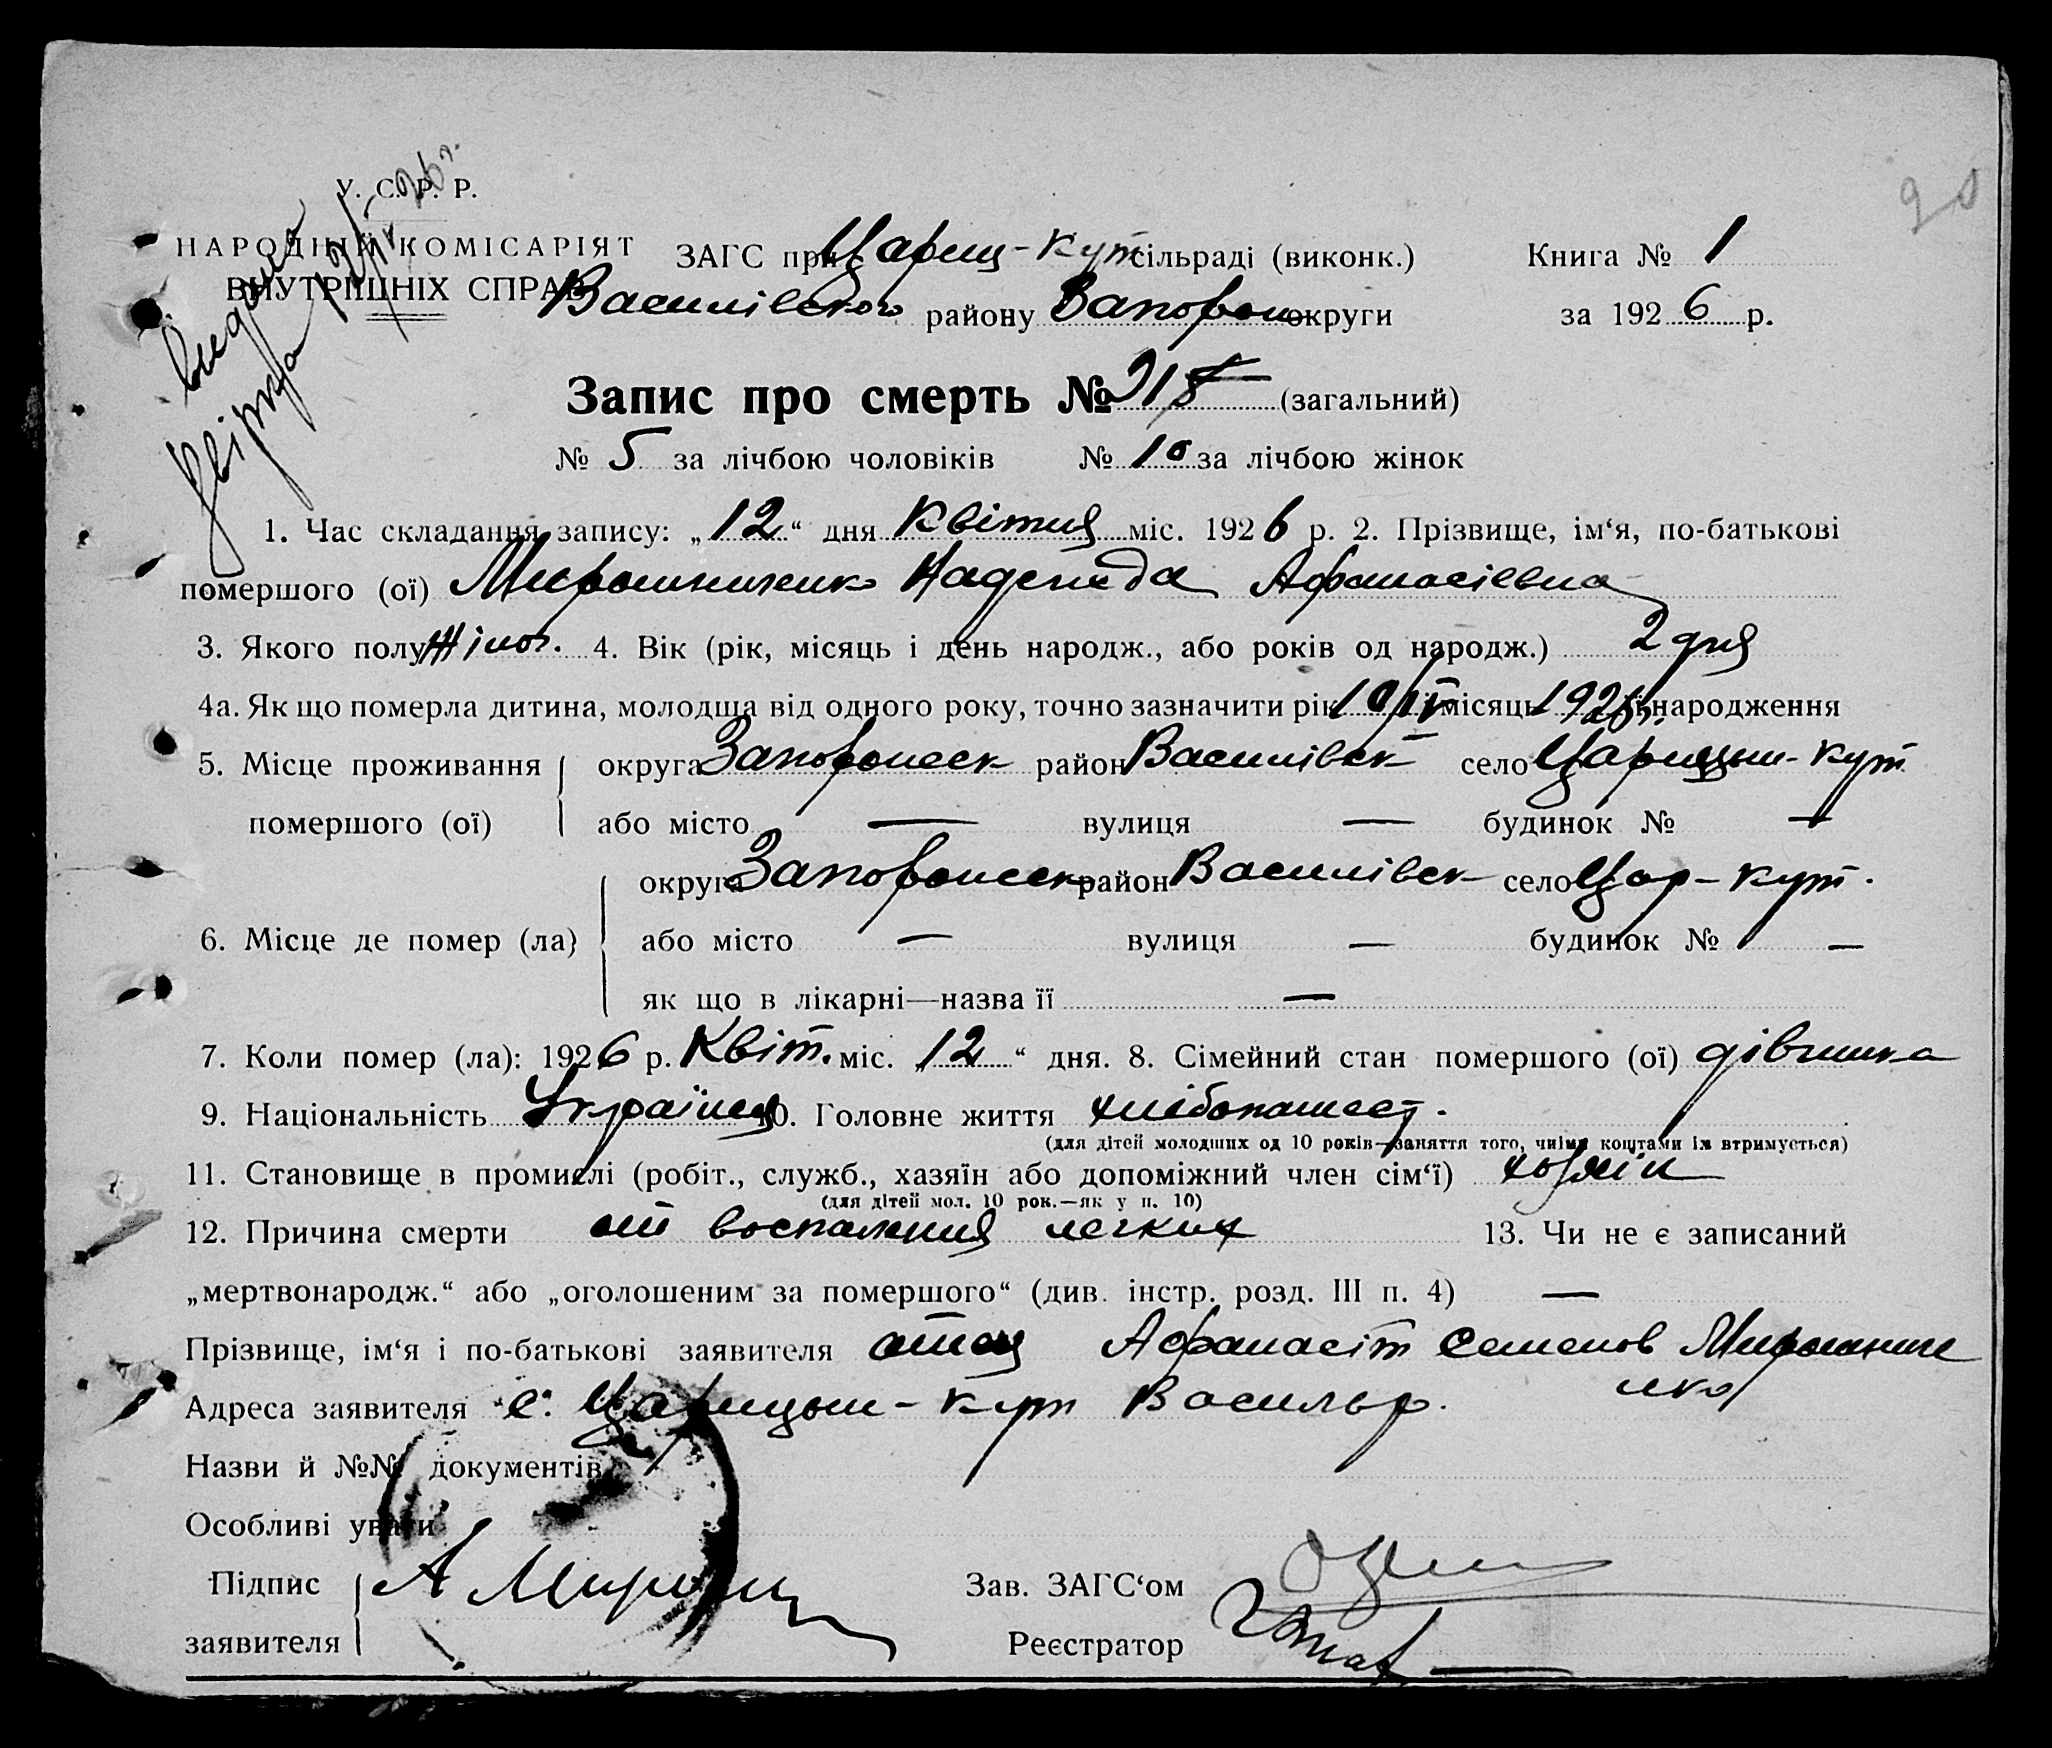 90
У. С. Р. Р.
НАРОДНІЙ КОМІСАРІЯТ
ВНУТРІШНІХ СПРАВ
видана
12/IV 26 г.
ЗАГС при Цариц-Кут сільраді (виконк.) Книга № 1
Василівского району Запорож округи за 1926 р.
Запис про смерть № (загальний)
№ 5 за лічбою чоловіків № 10 за лічбою жінок
1. Час складання запису: „12“ дня Квітня міс. 1926 р. 2. Прізвище, ім‘я, по-батькові
помершого (ої) Мирошниченко Надежда Афанасіевна
3. Якого полу Жіноч. 4. Вік (рік, місяць і день народж., або років од народж.) 2 дня
4а. Як що померла дитина, молодша від одного року, точно зазначити рік 10/IV місяць 1926 г. народження
5. Місце проживання округа Запорожск район Василівск село Царицын-Кут
помершого (ої) або місто — вулиця — будинок № —
округа Запорожск район Василівск село Цар-Кут.
6. Місце де помер (ла) або місто — вулиця — будинок № —
як що в лікарні—назва її —
7. Коли помер (ла): 1926 р. Квіт. міс. „12“ дня. 8. Сімейний стан помершого (ої) дівчинка
9. Національність Українця 10. Головне життя хлібопашест.
(для дітей молодших од 10 років—заняття того, чиїми коштами їх втримується)
11. Становище в промислі (робіт., служб., хазяїн або допоміжний член сім‘ї) хозяін
(для дітей мол. 10 рок.—як у п. 10)
12. Причина смерти от воспаления легких 13. Чи не є записаний
„мертвонародж.“ або „оголошеним за помершого“ (див. інстр. розд. III п. 4) —
Прізвище, ім‘я і по-батькові заявителя отец Афанасій Семенов Мирошниче
нко
Адреса заявителя с. Царицын-Кут Васильр.
Назви й №№ документів
Особливі уваги
Підпис А Мирош
заявителя
Зав. ЗАГС‘ом
Реєстратор